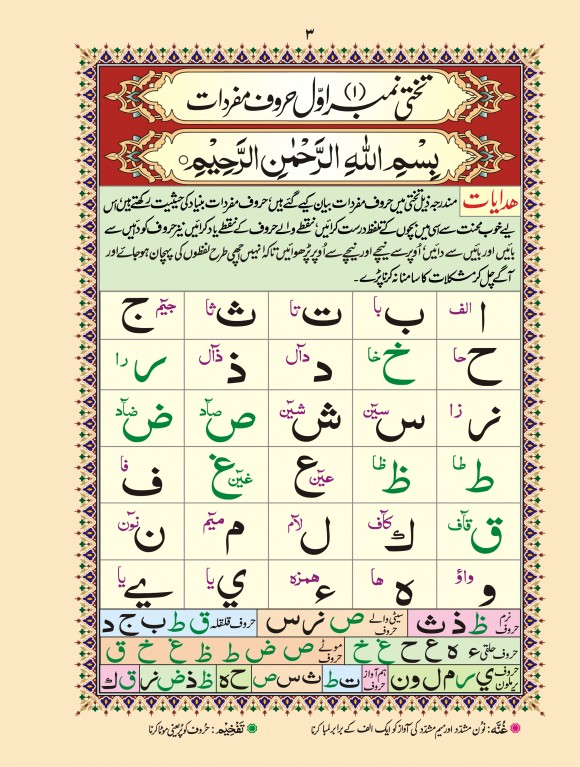 ۳
تختی نمبر (۱) اوّل حروف مفردات
بِسْمِ اللهِ الرَّحْمٰنِ الرَّحِيْمِ
ھدایات مندرجہ ذیل تختی میں حروف مفردات بیان کیے گئے ہیں، حروف مفردات بنیاد کی حیثیت رکھتے ہیں، اس
لیے خوب محنت سے ہی میں بچوں کے تلفظ درست کرائیں، نقطے والے حروف کے نقطے یاد کرائیں نیز حروف کو دائیں سے
بائیں اور بائیں سے دائیں، اُوپر سے نیچے اور نیچے سے اُوپر پڑھوائیں تاکہ انہیں اچھی طرح لفظوں کی پہچان ہوجائے اور
آگے چل کر مشکلات کا سامنا نہ کرنا پڑے۔
ا الف ب با ت تا ث ثا ج جیٓم
ح حا خ خا د دآل ذ ذآل ر را
ز زا س سیٓن ش شیٓن ص صآد ض ضآد
ط طا ظ ظا ع عیٓن غ غیٓن ف فا
ق قآف ك كآف ل لآم م میٓم ن نوٓن
و واوٓ ہ ھا ء ھمزہ ي یا ے یا
نرم حروف ظ ذ ث سیٹی والے حروف ص ز س حروف قلقلہ ق ط ب ج د
حروف حلقی ء ہ ع ح غ خ موٹے حروف ص ض ط ظ غ خ ق
حروف یرملون ي ر م ل و ن ہم آواز حروف ت ط ث س ص ح ہ ذ ز ض ظ ق ك
غُنَّه: نون مشدّد اور میم مشدّد کی آواز کو ایک الف کے برابر لمبا کرنا تَفْخِیْم: حُروف کو پُر یعنی موٹا کرنا